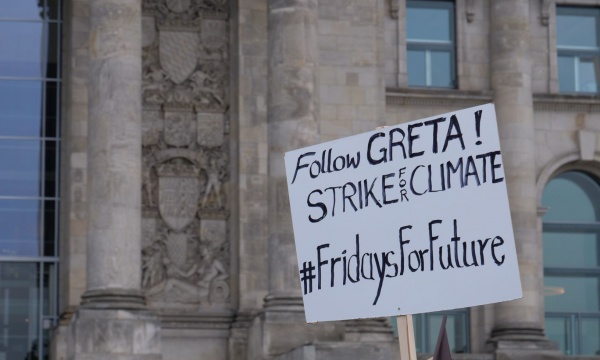 Follow GRETA!
STRIKE FOR CLIMATE
#FridaysForFuture